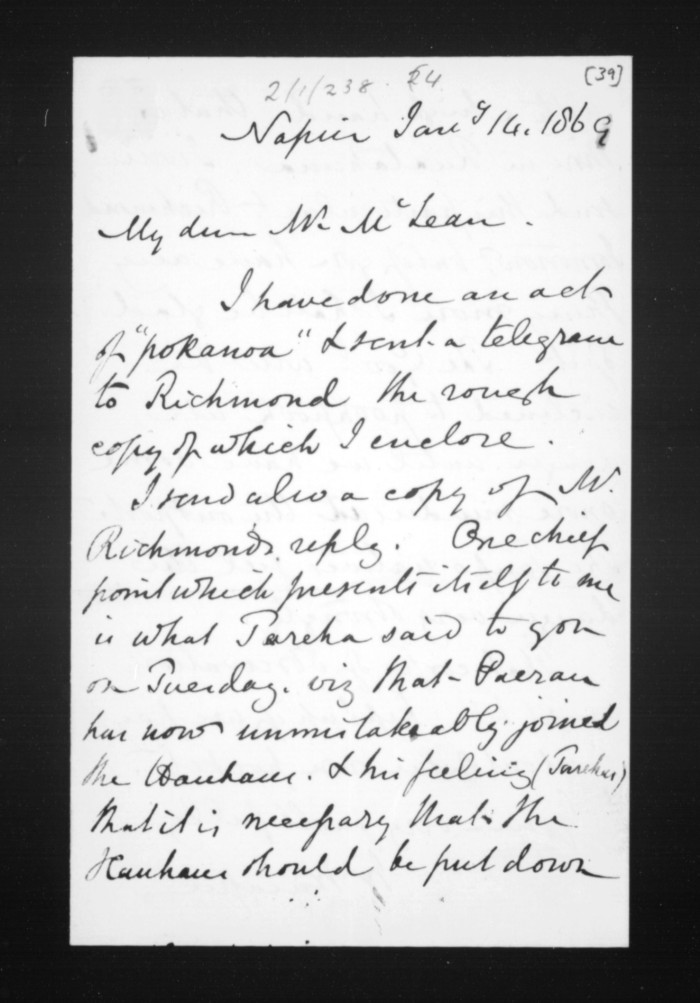 [39]
2/1/238 £4
Napier Jany 14. 1869
My dear Mr McLean.
I have done an act
of "pokanoa" & sent a telegram
to Richmond the rough
copy of which I enclose.
I send also a copy of Mr
Richmonds reply. One chief
point which presents itself to me
is what Tareha said to you
on Tuesday. viz that Paerau
has now unmistakeably joined
the Hauhaus. & his feeling (Tarehas)
that it is necessary that the
Hauhaus should be put down